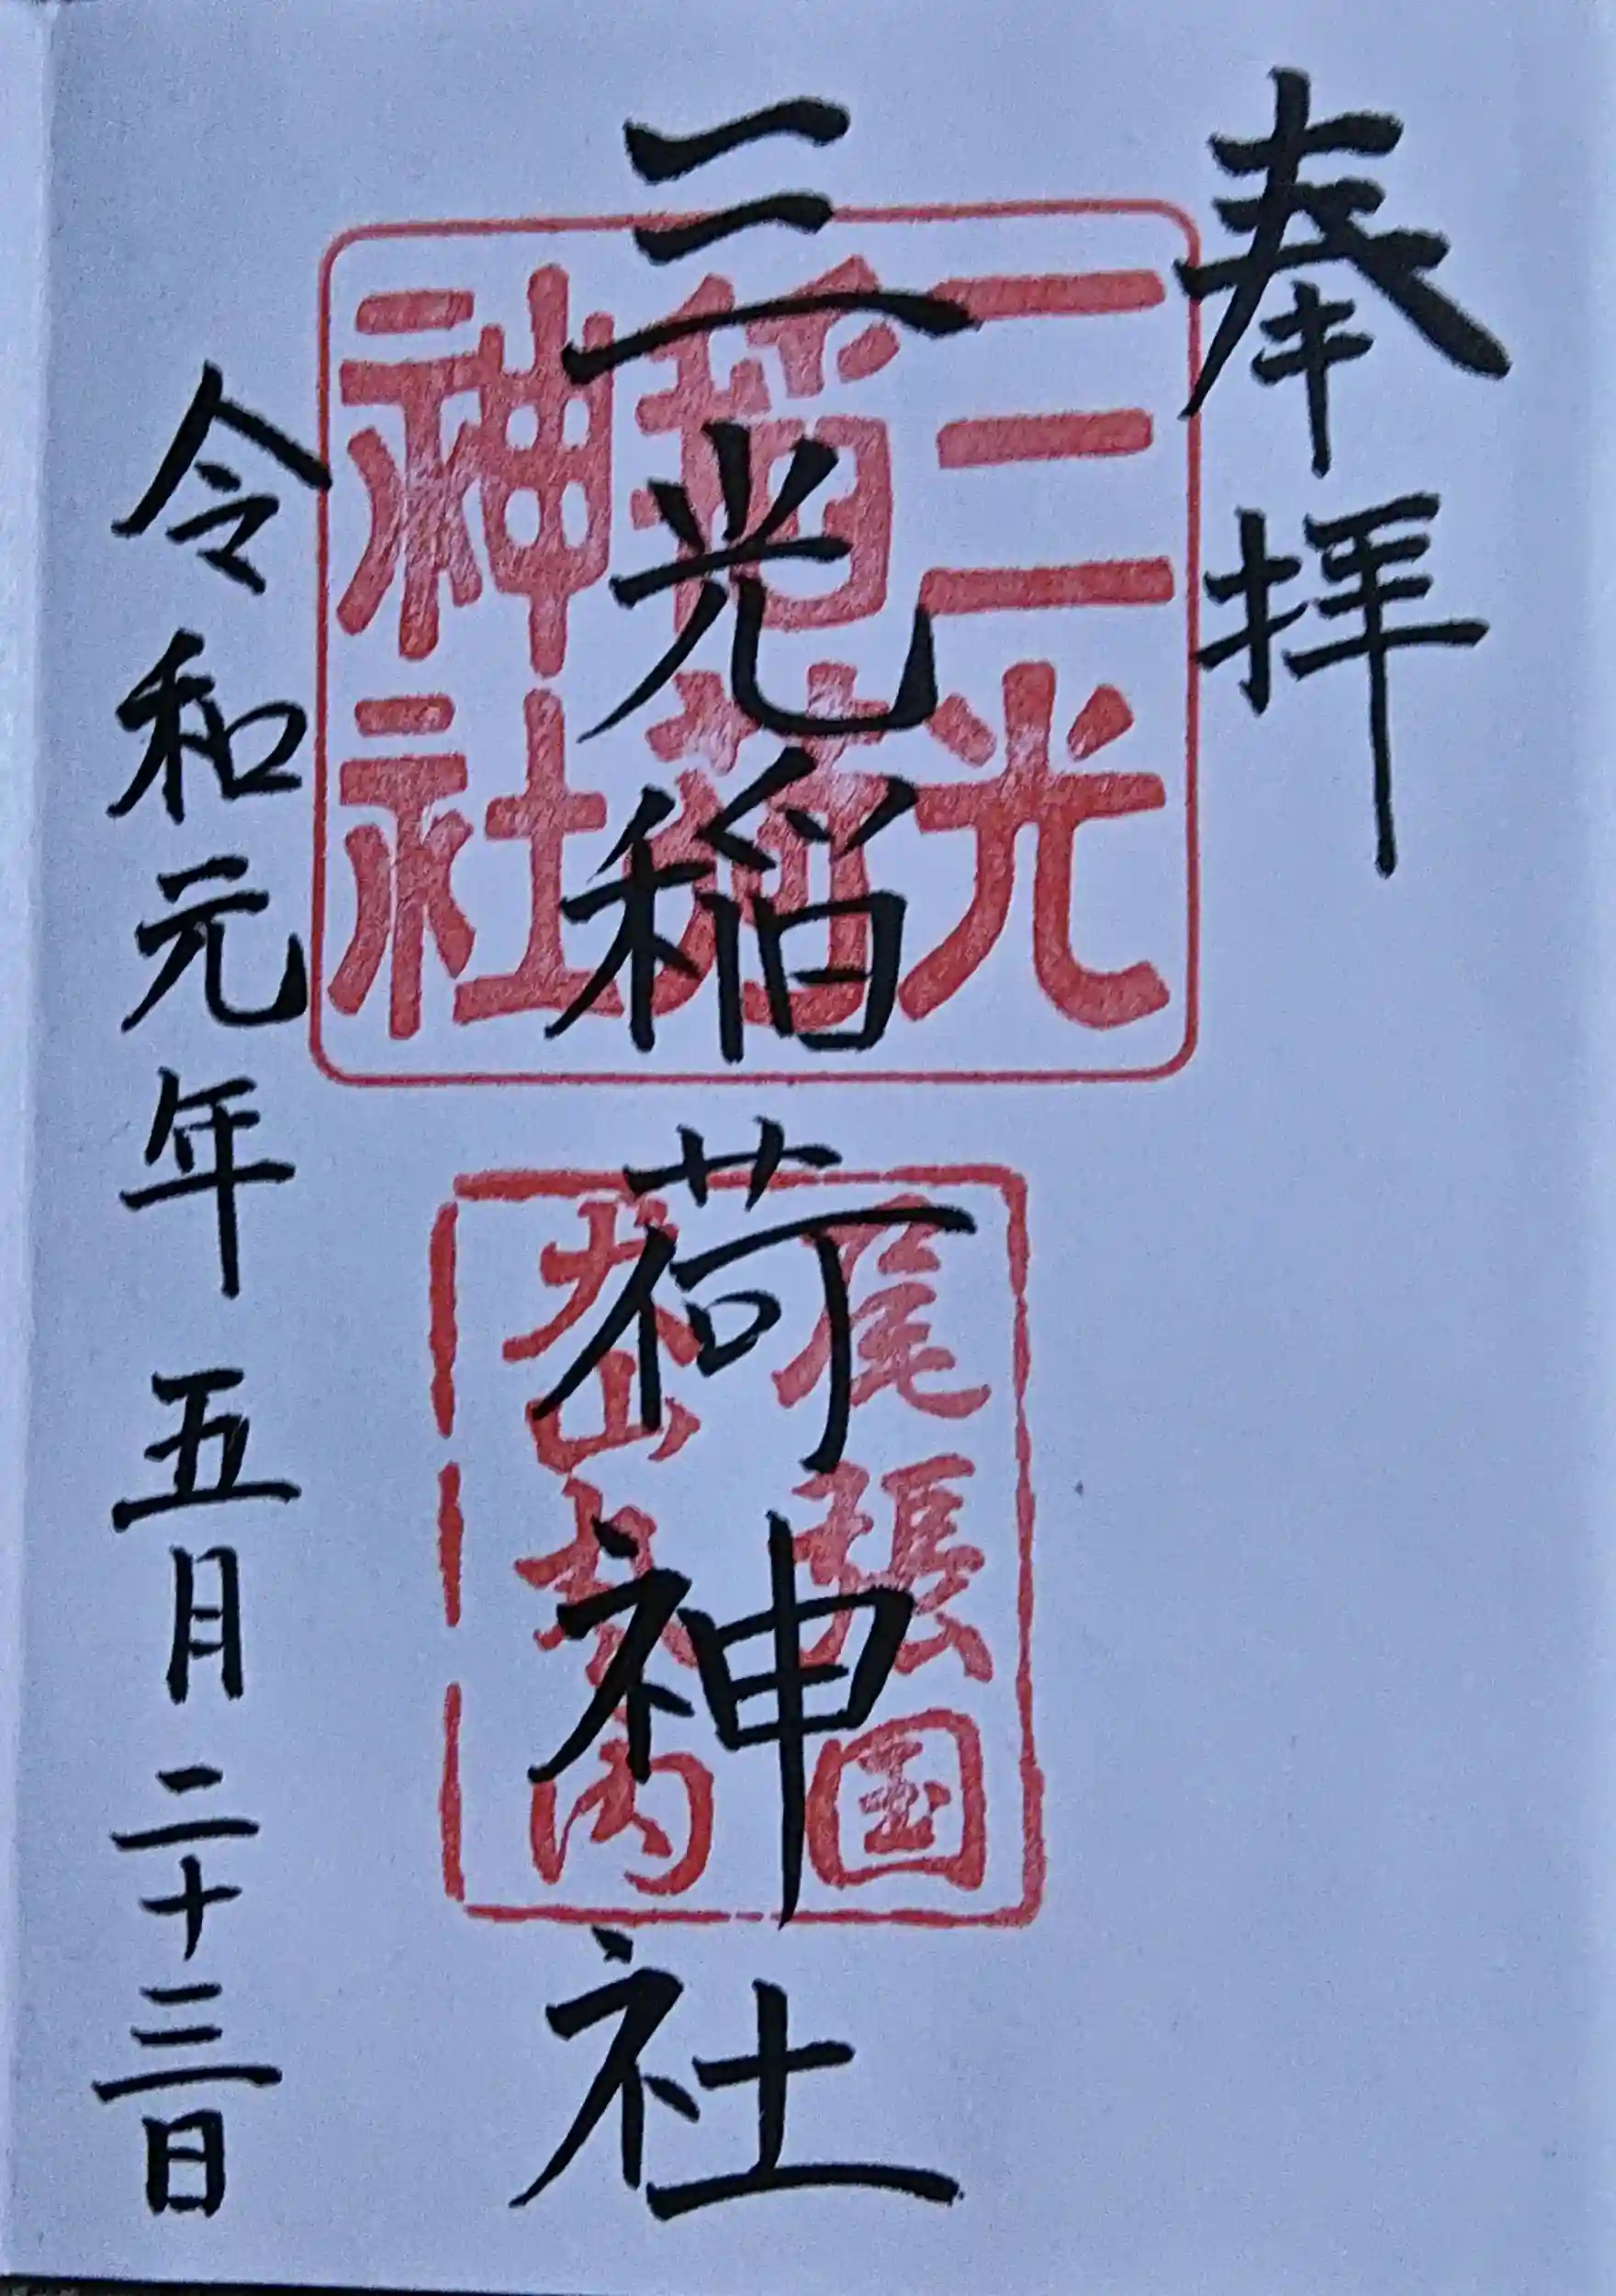 奉拝
三光稲荷神社
令和元年五月二十三日
三光
稲荷
神社
尾張国
犬山城内